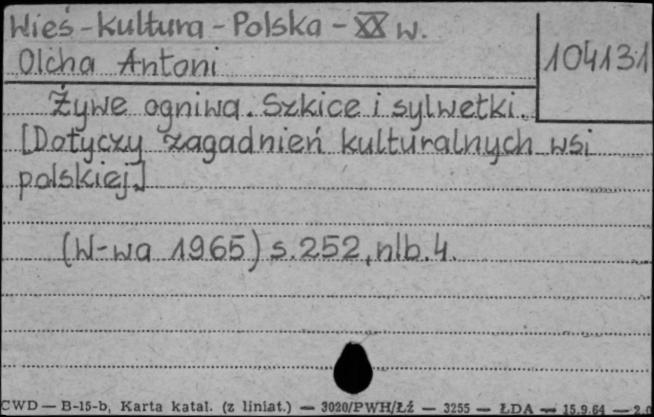 Wieś-kultura-Polska-XX w.
Olcha Antoni
104131
Żywe ogniwa. Szkice i sylwetki.
[Dotyczy zagadnień kulturalnych wsi
polskiej.]
(W-wa 1965) s.252, nlb.4.
CWD — B-15-b, Karta katal. (z liniat.) — 3020/PWH/Łź — 3255 — ŁDA — 15.9.64